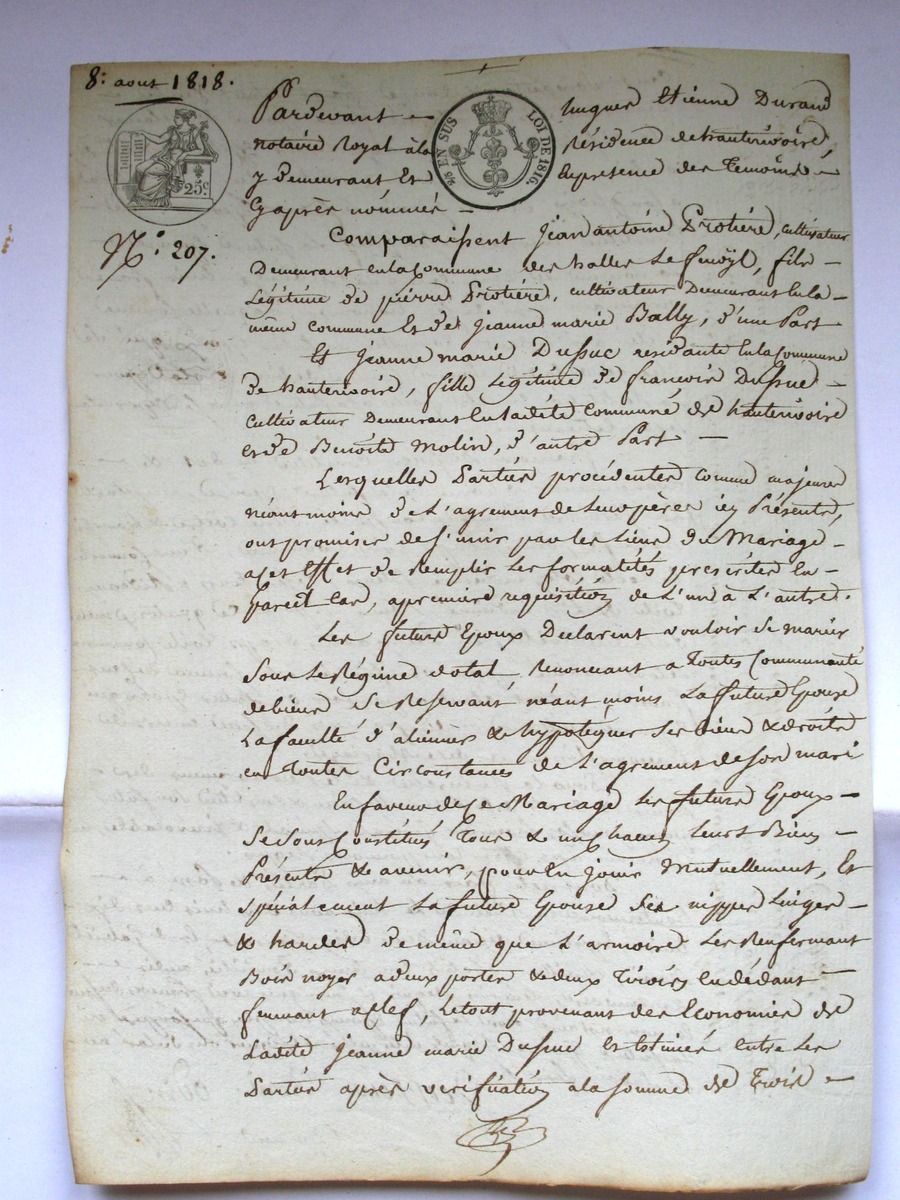 8: aout 1818.
25c
EN SUS LOI DE 1816.
N.° 207.
Pardevant hugues Etienne Durand
notaire Royal à la Résidence de hauterivoire,
y Demeurant Et En presence des Temoins
Cy après nommés
Comparaissent Jean antoine Protière, cultivateur
Demeurant en la Commune des halles Le fenoÿl, fils
Légitime de pierre Protière, cultivateur Demeurant En la
même commune Et de Jeanne marie Bally, d'une Part
Et Jeanne marie Dussuc residante En la Commune
de hauterivoire, fille Légitime de francois Dussuc
Cultivateur Demeurant En la dite Commune de hauterivoire
et de Benoite Molin, d'autre Part
Lesquelles Parties procédentes comme majeures
néant moins de L'agrement de Leurs pères icy Présents,
ont promises de s'unir par les Liens du Mariage
a cet Effet de Remplir Les formalités prescrites En
pareil Cas, a premiere requisition de L'un à L'autre.
Les future Epoux Declarent vouloir se marier
Sous Le Régime dotal, Renoncant a Toutes Communauté
de biens Se Reservant néant moins La future Epouse
La faculté d'aliéner & hypotéquer Ses biens & droits
en Toutes Circonstances de L'agrement de son mari
En faveur de Ce Mariage Les future Epoux
Se sont Constitués Tous & un Chacun Leurs Biens
Présents & avenir, pour En jouir Mutuellement, Et
spécialement La future Epouse Ses nippes Linges
& hardes de même que L'armoire Les Renfermant
Bois noyer a deux portes & deux Tiroirs En dédant
fermant a Clef, Le tout provenant des Economies de
Ladite Jeanne marie Dussuc Et Estimés Entre Les
Parties après verification a la Somme de Trois